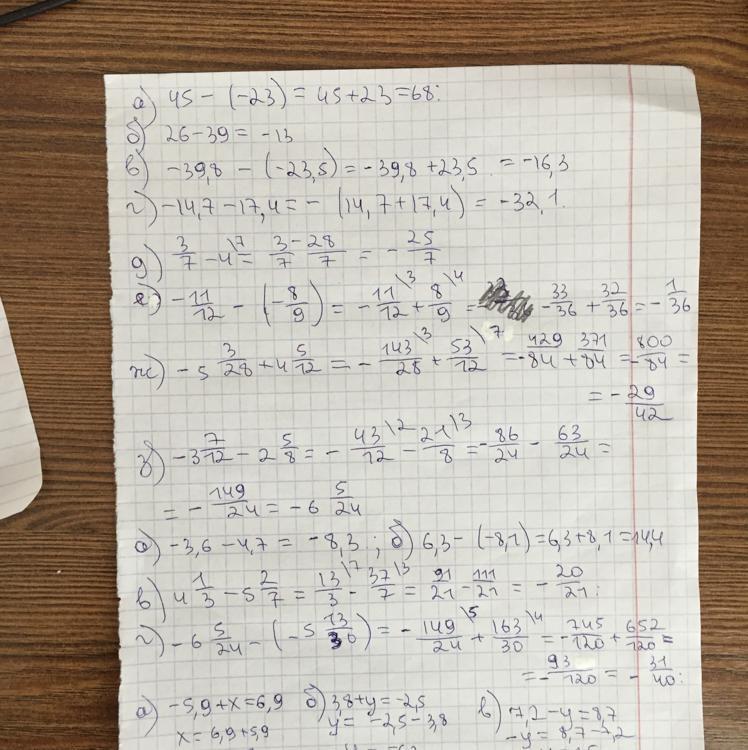 а) 45 - (-23) = 45+23 = 68;
б) 26-39 = -13
в) -39,8 - (-23,5) = -39,8 + 23,5 = -16,3
г) -14,7-17,4 = - (14,7+17,4) = -32,1.
д) 3/7 - 4\7 = 3-28/7 = - 25/7
е) - 11/12 - (- 8/9) = - 11/12\3 + 8/9\4 = - 33/36 + 32/36 = - 1/36
ж) -5 3/28 + 4 5/12 = - 143/28\3 + 53/12\7 = - 429/84 + 371/84 = - 800/84 =
= - 29/42
з) -3 7/12 - 2 5/8 = - 43/12\2 - 21/8\3 = - 86/24 - 63/24 =
= - 149/24 = -6 5/24
а) -3,6 - 4,7 = -8,3 ; б) 6,3 - (-8,1) = 6,3+8,1 = 14,4
в) 4 1/3 - 5 2/7 = 13/3\7 - 37/7\3 = 91/21 - 111/21 = - 20/21;
г) -6 5/24 - (-5 13/30) = - 149/24\5 + 163/30\4 = - 745/120 + 652/120 =
= - 93/120 = - 31/40;
а) -5,9+x = 6,9 б) 3,8+y = -2,5 в) 7,2 - y = 8,7
x = 6,9+5,9 y = -2,5 - 3,8 -y = 8,7-7,2